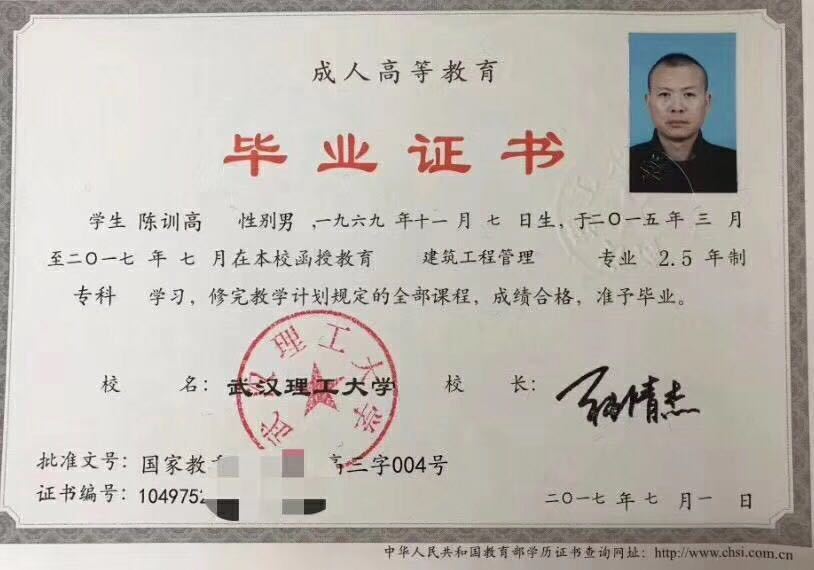 成人高等教育
毕业证书
学生 陈训高 性别男,一九六九 年十一 月 七 日生,于二〇一五年 三 月
至二〇一七 年 七 月在本校函授教育 建筑工程管理 专业 2.5 年制
专科 学习,修完教学计划规定的全部课程,成绩合格,准予毕业。
武汉理工大学
校 名:武汉理工大学 校 长:
批准文号:国家教 高三字004号
证书编号:104975
二〇一七 年 七 月 一 日
中华人民共和国教育部学历证书查询网址:http://www.chsi.com.cn